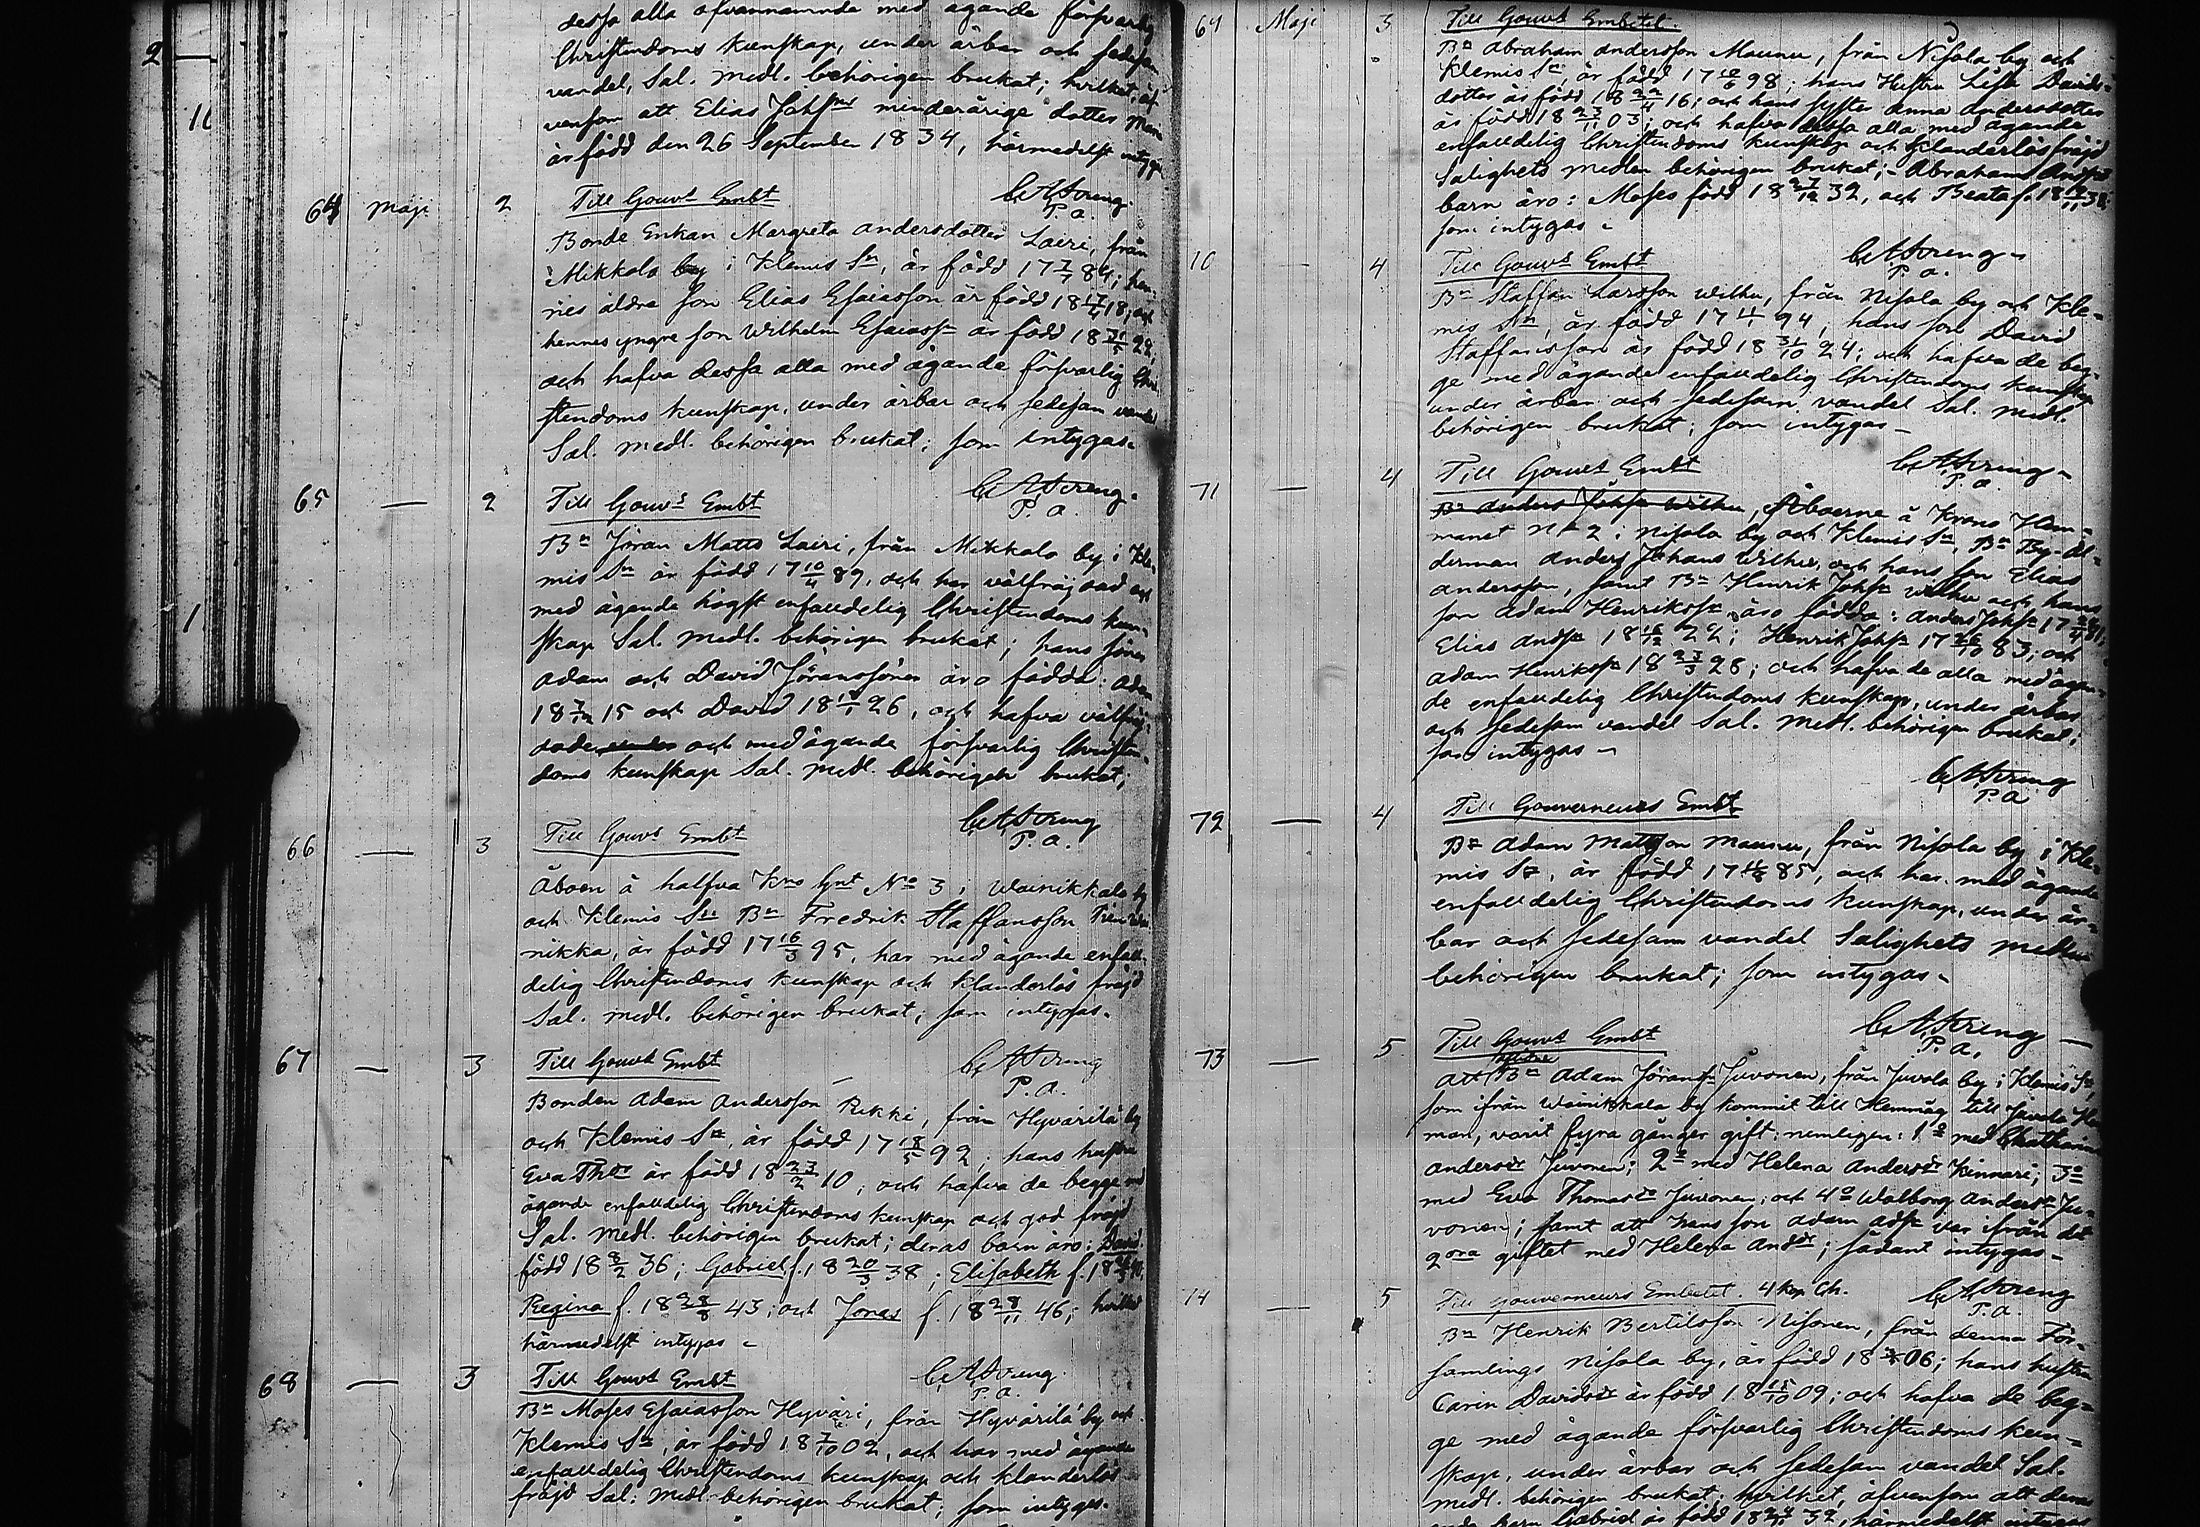 dessa alla ofvannamnde med ägande försvarlig
Christendoms kunskap, under ärbar och sedesam
vandel, Sal. medl. behörigen brukat; hvilket, äf
vensom att Elias Johsns minderårige dotter Maria
är född den 26 September 1834, härmedelst intygas
CAStreng
P. a.
64 Maji 2 Till Gouvs Embt
Bonde Enkan Margreta Andersdotter Lairi, från
Mikkola by i Klemis Sn, är född 17 7/7 84; hen-
nes äldre son Elias Esaiasson är född 18 17/4 18, och
hennes yngre son Wilhelm Esaiass är född 18 31/5 22,
och hafva dessa alla med ägande försvarlig Chri
stendoms kunskap, under ärbar och sedesam vandel
Sal. medl. behörigen brukat; som intygas.
CAStreng.
P. a.
65 — 2 Till Gouvs Embt
Bn Jöran Matts Lairi, från Mikkala by i Kle-
mis Sn är född 17 10/4 89, och har välfräjdad och
med ägande högst enfaldelig Christendoms kun-
skap Sal. medl. behörigen brukat; hans söner
Adam och David Jöranssöner äro födda: Adam
18 7/12 15 och David 18 1/1 26, och hafva välfräj-
dade och med ägande försvarlig Christen-
doms kunskap Sal. medl. behörigen brukat;
CAStreng
P. a.
66 — 3 Till Gouvs Embt
Åboen å halfva Krs Hmt No 3 i Wainikkala by
och Klemis Sn Bn Fredrik Staffansson
nikka, är född 17 16/3 95, har med ägande enfal-
delig Christendoms kunskap och klanderlös fräjd
Sal. medl. behörigen brukat; som intygas.
CAStreng
P. a.
67 — 3 Till Gouvs Embt
Bonden Adam Andersson Pekki, från Hyvärilä by
och Klemis Sn, är född 17 18/5 92; hans hustru
Eva Thdr är född 18 23/2 10; och hafva de begge med
ägande enfaldelig Christendoms kunskap och god fräjd
Sal. medl. behörigen brukat; deras barn äro: David
född 18 8/2 36; Gabriel f. 18 20/3 38; Elisabeth f. 18
Regina f. 18 28/8 43; och Jonas f. 18 28/11 46; hvilket
härmedelst intygas
CAStreng.
P. a.
68 — 3 Till Gouvs Embt
Bn Moses Esaiasson Hyväri, från Hyvärilä by och
Klemis Sn, är född 18 7/10 02, och har med ägande
enfaldelig Christendoms kunskap och klanderlös
fräjd Sal. medl. behörigen brukat; som intygas.
64 Maji 3 Till Gouvs Embetet.
Bn Abraham Andersson Maunu, från Nisola by och
Klemis Sn, är född 17 12/6 98; hans Hustru Lisa Davids-
dotter är född 18 22/4 16; och hans syster Anna Andersdotter
är född 18 23/11 03; och hafva dessa alla med ägande
enfaldelig Christendoms kunskap och klanderlös fräjd
Salighets medlen behörigen brukat;- Abraham Anders
barn äro: Moses född 18 27/12 32, och Beata f. 18
som intygas
CAStreng
P. a.
10 — 4 Till Gouvs Embt
Bn Staffan Larsson Wilhu, från Nisola by och Kle-
mis Sn, är född 17 4/4 94, hans son David
Staffansson är född 18 31/10 24; och hafva de beg-
ge med ägande enfaldelig Christendoms kunskap
under ärbar och sedesam vandel Sal. medl.
behörigen brukat; som intygas
CAStreng
P. a.
71 — 4 Till Gouvs Embt
Bn Anders Johss Wilhu, Åboerne å Krono Hem-
manet No 2 i Nisola by och Klemis Sn, Bn By-Ål-
derman Anders Johans Wilhu, och hans son Elias
Andersson, samt Bn Henrik Johss Wilhu och hans
son Adam Henrikss äro födda: Anders Johss 17
Elias Andss 18 16/12 22; Henrik Johss 17 26/10 83; och
Adam Henrikss 18 23/3 28; och hafva de alla med ägan-
de enfaldelig Christendoms kunskap, under ärbar
och sedesam vandel Sal. medl. behörigen brukat;
som intygas
CAStreng
P. a
72 — 4 Till Gouverneurs Embt
Bn Adam Mattsson Maunu, från Nisola by i Kle-
mis Sn, är född 17 16/8 85, och har med ägande
enfaldelig Christendoms kunskap, under är-
bar och sedesam vandel Salighets medlen
behörigen brukat; som intygas
CAStreng
P. a.
73 — 5 Till Gouvs Embt
Att Bn Adam Jöranss Juvonen, från Juvola by i Klemis Sn,
som ifrån Wainikkala by kommit till Hemmåg till Juvola Hem
man, varit fyra gånger gift: nemligen: 1o med Chatharina
Andersdr Juvonen; 2o med Helena Andersdr Kinnari; 3o
med Eva Thomasdr Juvonen; och 4o Walborg Andersdr Ju-
vonen; samt att hans son Adam Adss var ifrån det
2dra giftet med Helena Andsdr; sådant intygas
CAStreng
P. a
74 — 5 Till Gouverneurs Embetet. 4 kop Ch.
Bn Henrik Bertilsson Nisonen, från denna För-
samlings Nisola by, är född 18 06; hans hustru
Carin Davidsdr är född 18 15/10 09; och hafva de beg-
ge med ägande försvarlig Christendoms kun-
skap, under ärbar och sedesam vandel Sal.
medl. behörigen brukat; hvilket, äfvensom att deras
barn Gabriel är född 18 32, härmedelst intygas